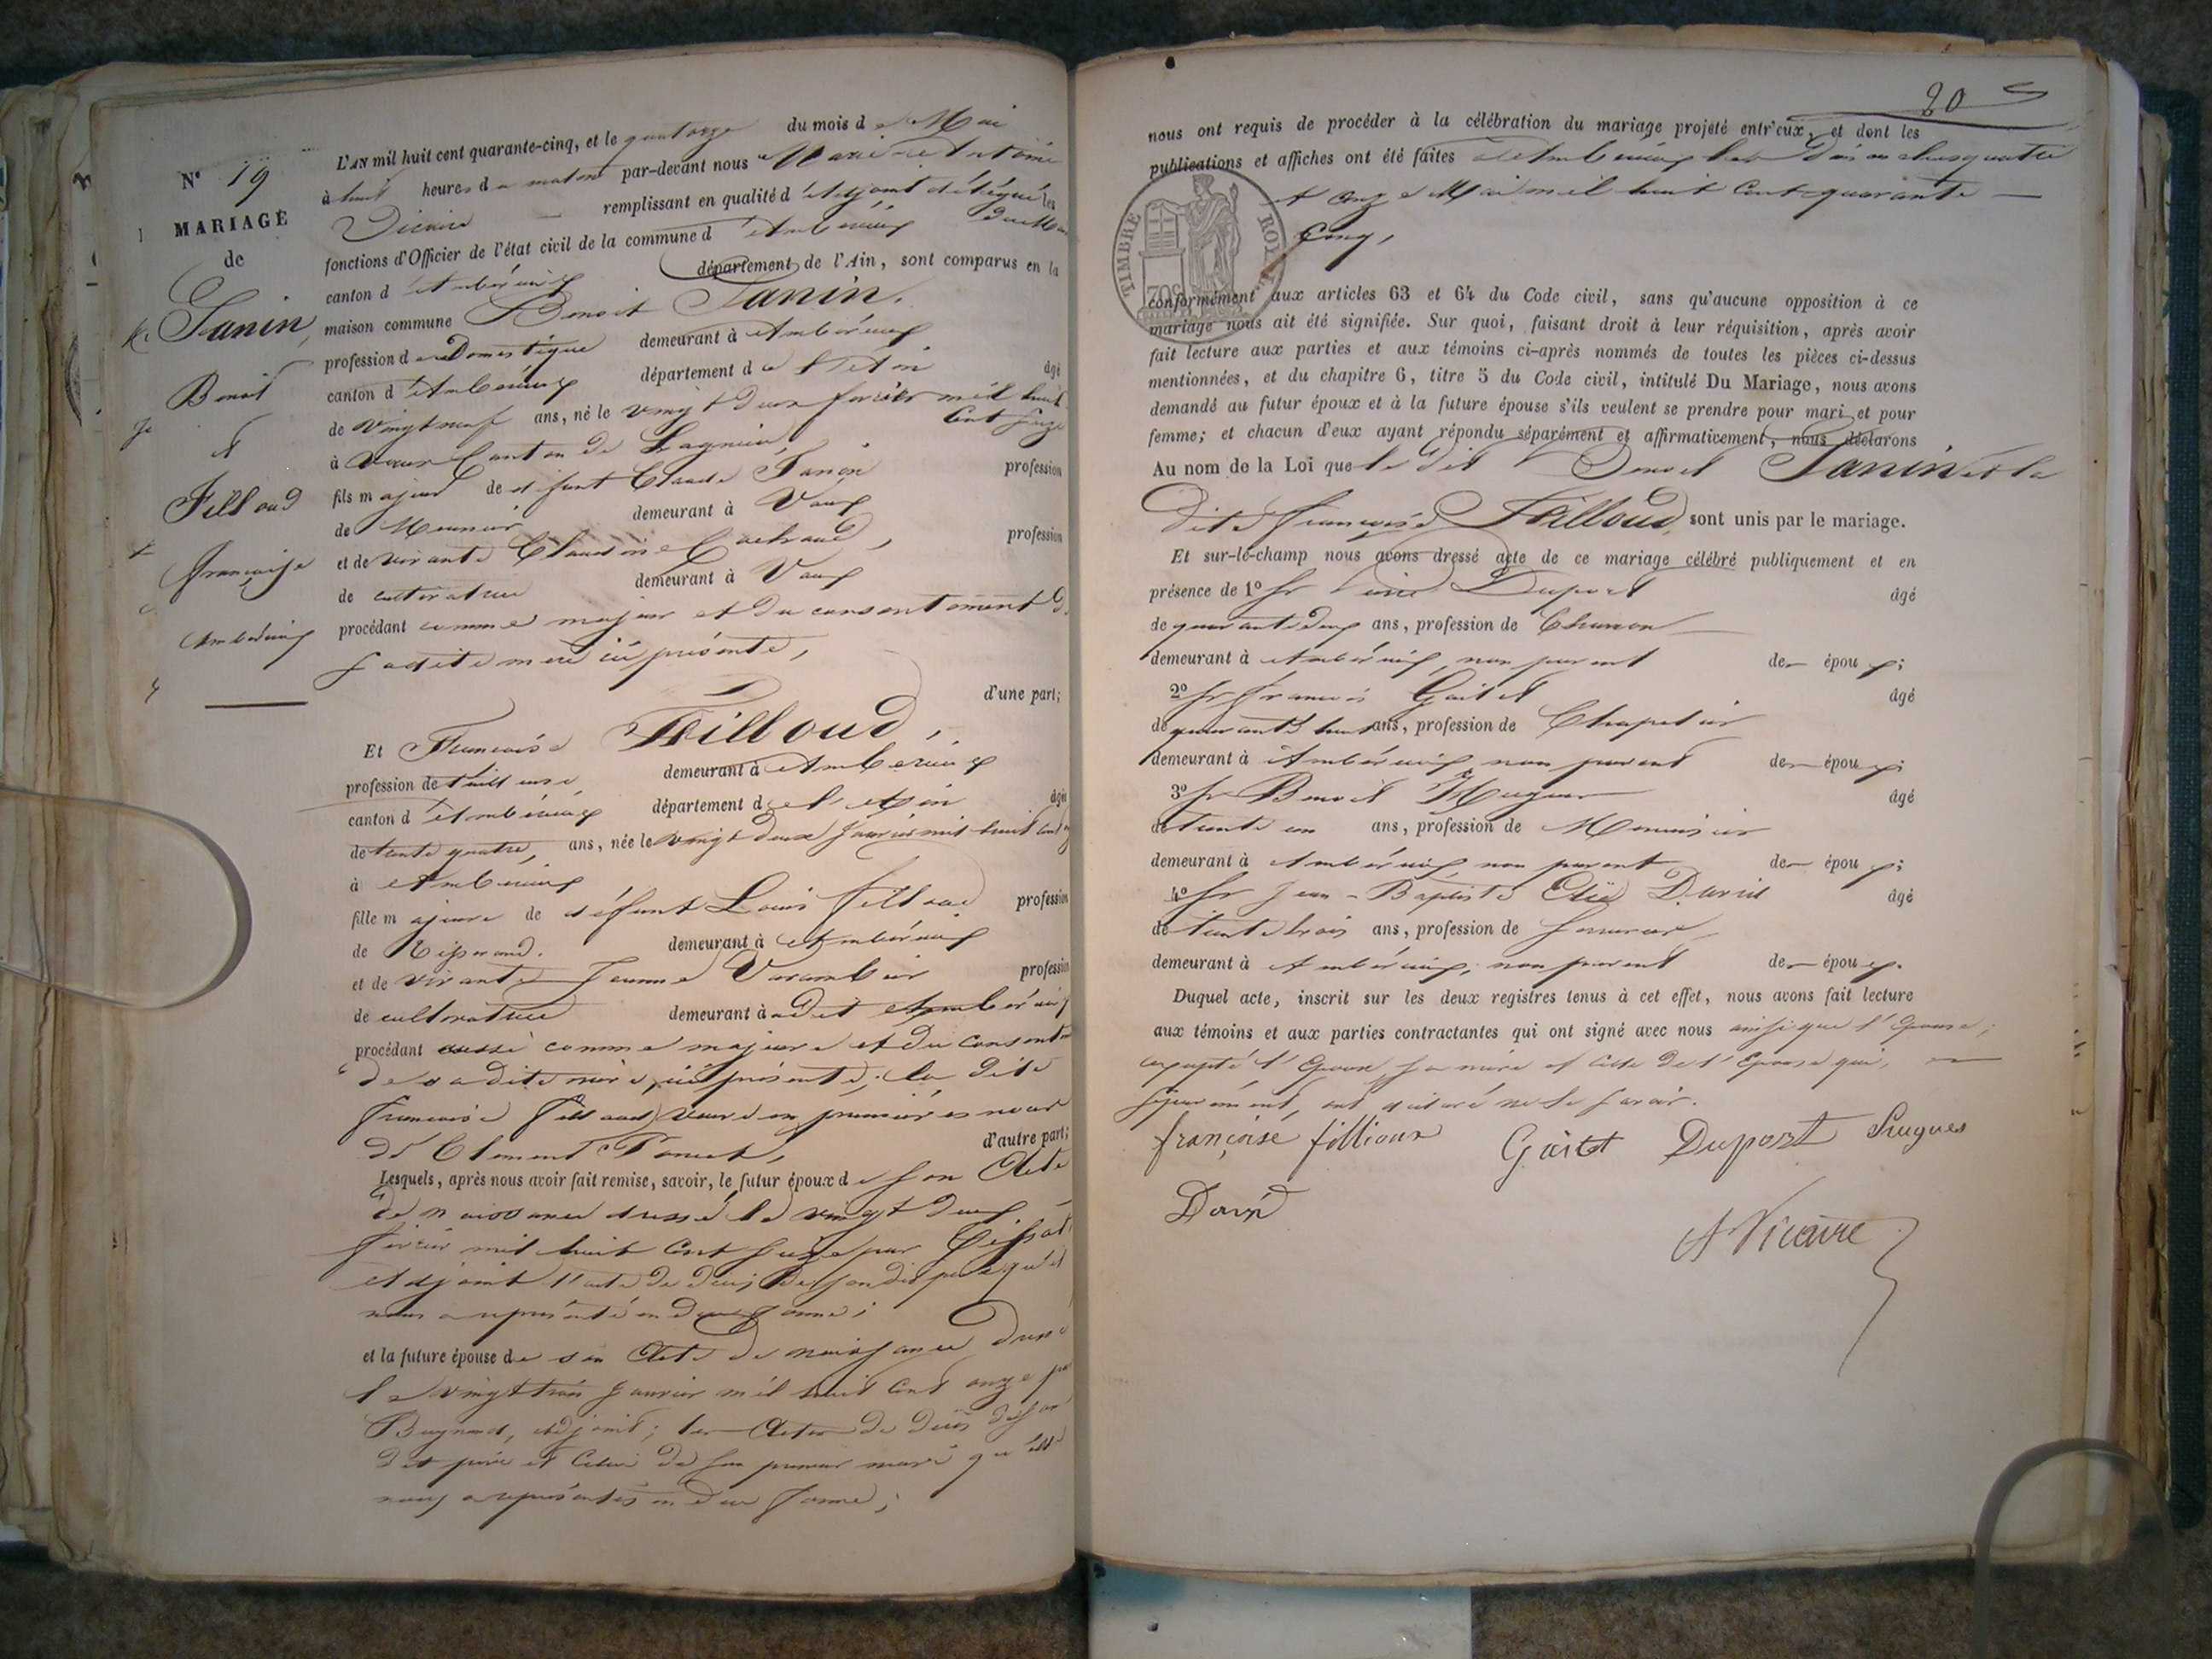 N° 19
MARIAGE
de
Janin,
Benoit
et
Filloud
françoise
Ambérieux
L'AN mil huit cent quarante-cinq, et le quatorze du mois de Mai
à huit heures du matin par-devant nous Marie Antoine
Vicaire remplissant en qualité d'Adjoint délégué les
fonctions d'Officier de l'état civil de la commune d'Ambérieux
canton d'Ambérieux département de l'Ain, sont comparus en la
maison commune Benoit Janin,
profession de Domestique demeurant à Ambérieux
canton d'Ambérieux département de l'Ain âgé
de vingt neuf ans, né le vingt deux février mil huit
cent seize
à Vaux Canton de Lagnieu,
fils majeur de défunt Claude Janin profession
de Meunier demeurant à Vaux
et de vivante Claudine profession
de cultivatrice demeurant à Vaux
procédant comme majeur et du consentement de
sadite mère ici présente,
d'une part;
Et Françoise Filloud,
profession de tailleuse demeurant à Ambérieux
canton d'Ambérieux département de l'Ain âgée
de trente quatre, ans, née le vingt deux Janvier mil huit cent onze
à Ambérieux
fille majeure de défunt Louis Filloud profession
de Tisserand. demeurant à Ambérieux
et de vivante Jeanne Varambier profession
de cultivatrice demeurant à audit Ambérieux
procédant aussi comme majeure et du consentement
de sadite mère, ici présente; la dite
françoise Filloud veuve en premières noces
de Clement Poncet,
d'autre part;
Lesquels, après nous avoir fait remise, savoir, le futur époux de son Acte
de naissance dressé le vingt deux
février mil huit cent seize par
Adjoint l'acte de décès de son dit père qu'il
nous a représenté en due forme;
et la future épouse de son Acte de naissance dressé
le vingt trois Janvier mil huit cent onze par
Adjoint; les Actes de décès de son
dit père et celui de son premier mari qu'elle
nous a représentés en due forme;
20
nous ont requis de procéder à la célébration du mariage projeté entr'eux, et dont les
publications et affiches ont été faites à Ambérieux les Dimanches quatre
et onze Mai mil huit cent quarante
cinq,
TIMBRE ROYAL
conformément aux articles 63 et 64 du Code civil, sans qu'aucune opposition à ce
mariage nous ait été signifiée. Sur quoi, faisant droit à leur réquisition, après avoir
fait lecture aux parties et aux témoins ci-après nommés de toutes les pièces ci-dessus
mentionnées, et du chapitre 6, titre 5 du Code civil, intitulé Du Mariage, nous avons
demandé au futur époux et à la future épouse s'ils veulent se prendre pour mari et pour
femme; et chacun d'eux ayant répondu séparément et affirmativement, nous déclarons
Au nom de la Loi que le dit Benoit Janin et la
dite françoise Filloud, sont unis par le mariage.
Et sur-le-champ nous avons dressé acte de ce mariage célébré publiquement et en
présence de 1° Sr Dupont âgé
de quarante deux ans, profession de Charron
demeurant à Ambérieux, non parent de— époux;
2° Sr francois Gaitet âgé
de quarante huit ans, profession de Chapelier
demeurant à Ambérieux non parent de— époux;
3° Sr Benoit Hugues âgé
de trente un ans, profession de Menuisier
demeurant à Ambérieux, non parent de— époux;
4° Sr Jean-Baptiste Elie David âgé
de trente trois ans, profession de Serrurier
demeurant à Ambérieux, non parent de— époux.
Duquel acte, inscrit sur les deux registres tenus à cet effet, nous avons fait lecture
aux témoins et aux parties contractantes qui ont signé avec nous ainsi que l'Epouse;
excepté l'Epoux sa mère et celle de l'Epouse qui,
séparément, ont déclaré ne le savoir.
françoise fillioux Gaitet Dupont Hugues
David
A Vicaire